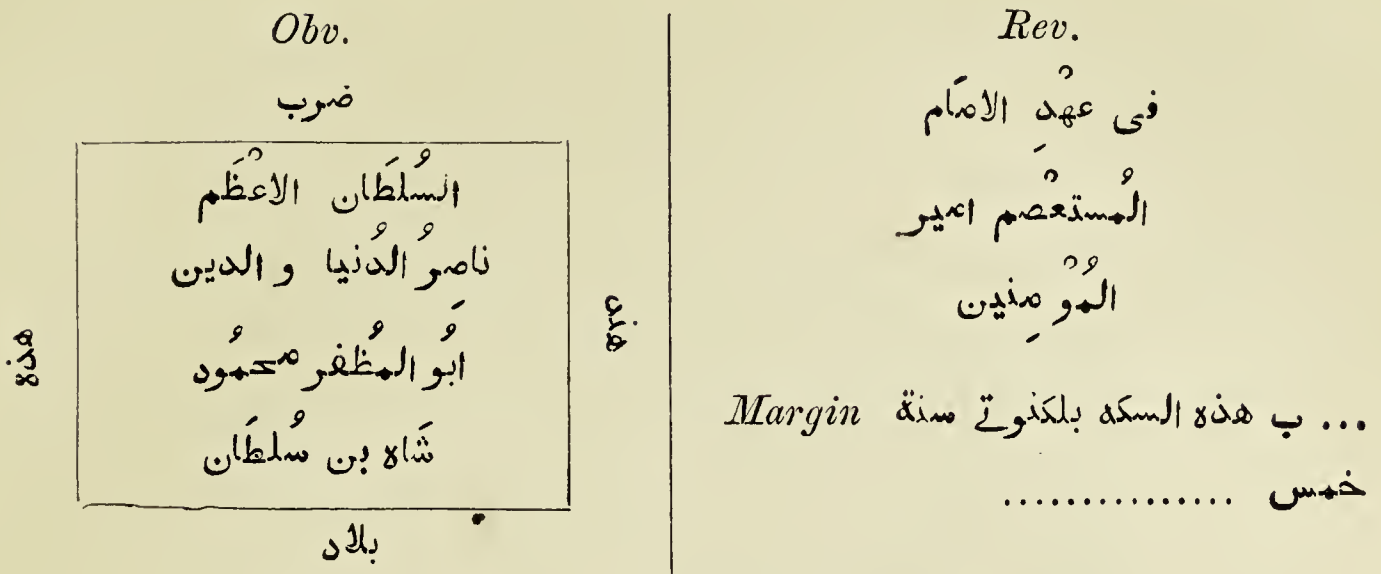 Obv.
ضرب
السُلطَان الاعْظَم
ناصرُ الدُنيا و الدين
ابُو المُظفر محمُود
شَاه بن سُلطَان
هذه
هند
بلاد
Rev.
فى عهْدِ الامَام
المُستعْصم امير
المُوْ مِنين
Margin ... ب هذه السكه بلكنوتے سنة
خمس ...............